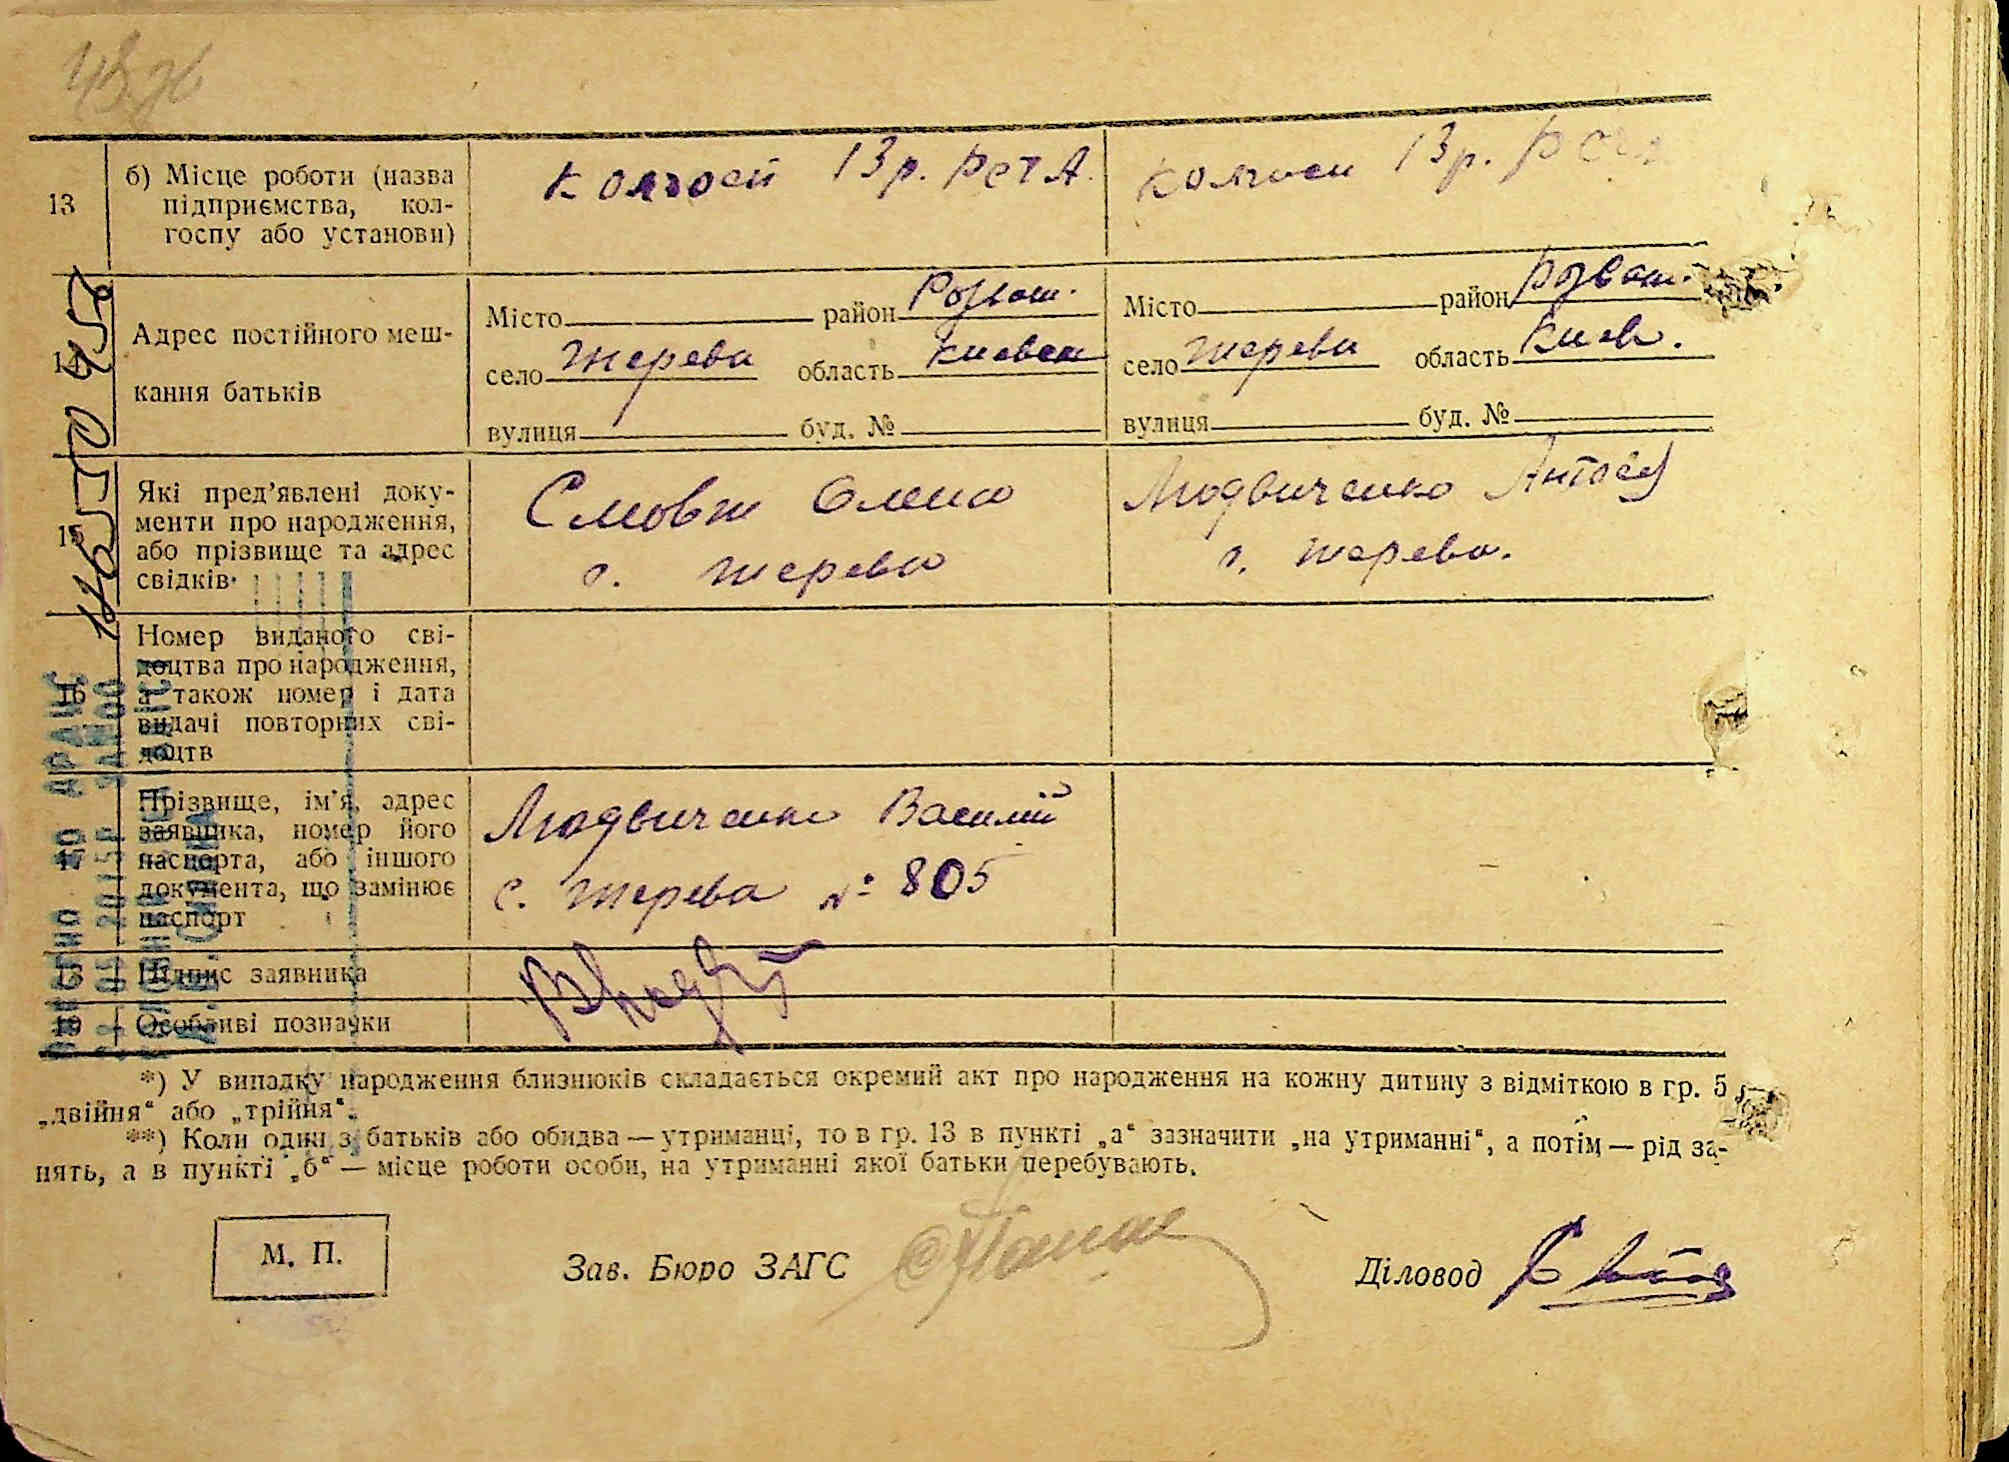 13
б) Місце роботи (назва
підприємства, кол-
госпу або установи)
колгосп 13 р. РСЧА.
колгосп 13 р. РСЧА
14
Адрес постійного меш-
кання батьків
Місто район Розваж.
село Терева область Киевск
вулиця буд. №
Місто район Розваж.
село Терева область Киев.
вулиця буд. №
15
Які пред'явлені доку-
менти про народження,
або прізвище та адрес
свідків
Олена
с. Терева
Людвиченко Антося
с. Терева.
16
Номер виданого сві-
доцтва про народження,
а також номер і дата
видачі повторних сві-
доцтв
17
Прізвище, ім'я, адрес
заявника, номер його
паспорта, або іншого
документа, що замінює
паспорт
Людвиченко Василий
с. Терева № 805
18
Підпис заявника
19
Особливі познауки
*) У випадку народження близнюків складається окремий акт про народження на кожну дитину з відміткою в гр. 5
„двійня" або „трійня".
**) Коли один з батьків або обидва — утриманці, то в гр. 13 в пункті „а" зазначити „на утриманні", а потім — рід за-
нять, а в пункті „б" — місце роботи особи, на утриманні якої батьки перебувають.
М. П.
Зав. Бюро ЗАГС
Діловод